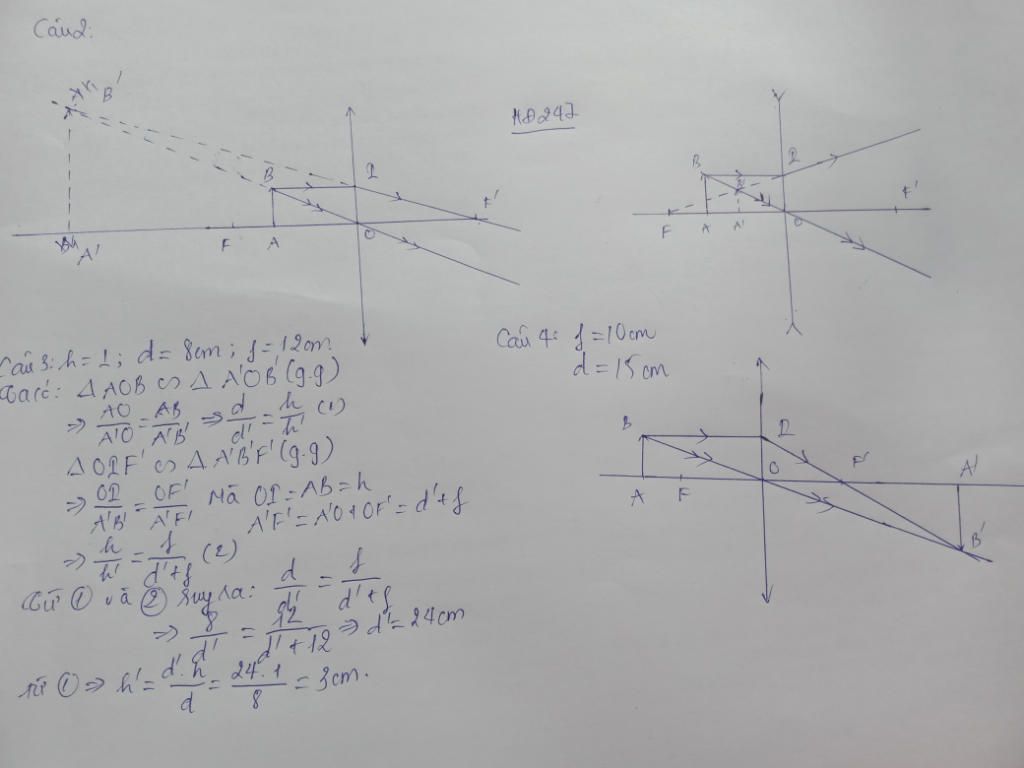 Câu 2:
B'
A'
F
A
B
I
O
F'
B
I
F
A
A'
O
F'
Câu 3: h = 1; d = 8cm; f = 12cm.
Ta có: Δ AOB ∽ Δ A'OB' (g.g)
⇒ AO/A'O = AB/A'B' ⇒ d/d' = h/h' (1)
Δ OIF' ∽ Δ A'B'F' (g.g)
⇒ OI/A'B' = OF'/A'F' Mà OI = AB = h
A'F' = A'O + OF' = d' + f
⇒ h/h' = f/d'+f (2)
Từ ① và ② suy ra: d/d' = f/d'+f
⇒ 8/d' = 12/d'+12 ⇒ d' = 24cm
từ ① ⇒ h' = d'.h/d = 24.1/8 = 3cm.
Câu 4: f = 10cm
d = 15cm
B
I
A
F
O
F'
A'
B'